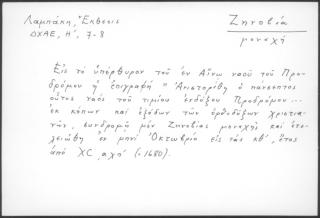 Λαμπάκη, Ἔκθεσις
ΔΧΑΕ, Η΄, 7-8
Ζηνοβία
μοναχή
Εἰς τὸ ὑπέρθυρον τοῦ ἐν Αἴνῳ ναοῦ τοῦ Προ-
δρόμου ἡ ἐπιγραφή "Ἀνιστορίθη ὁ πάνσεπτος
οὗτος ναὸς τοῦ τιμίου ἐνδόξου Προδρόμου...
ἐκ κόπων καὶ ἐξόδων τῶν ὀρθοδόξων Χριστια-
νῶν, συνδρομῇ μὲν Ζηνοβίας μοναχῆς καὶ ἐτε-
λειώθη ἐν μηνὶ Ὀκτωβρίῳ εἰς τὰς κθ΄, ἔτος
ἀπὸ ΧC αχπ΄ (=1680).